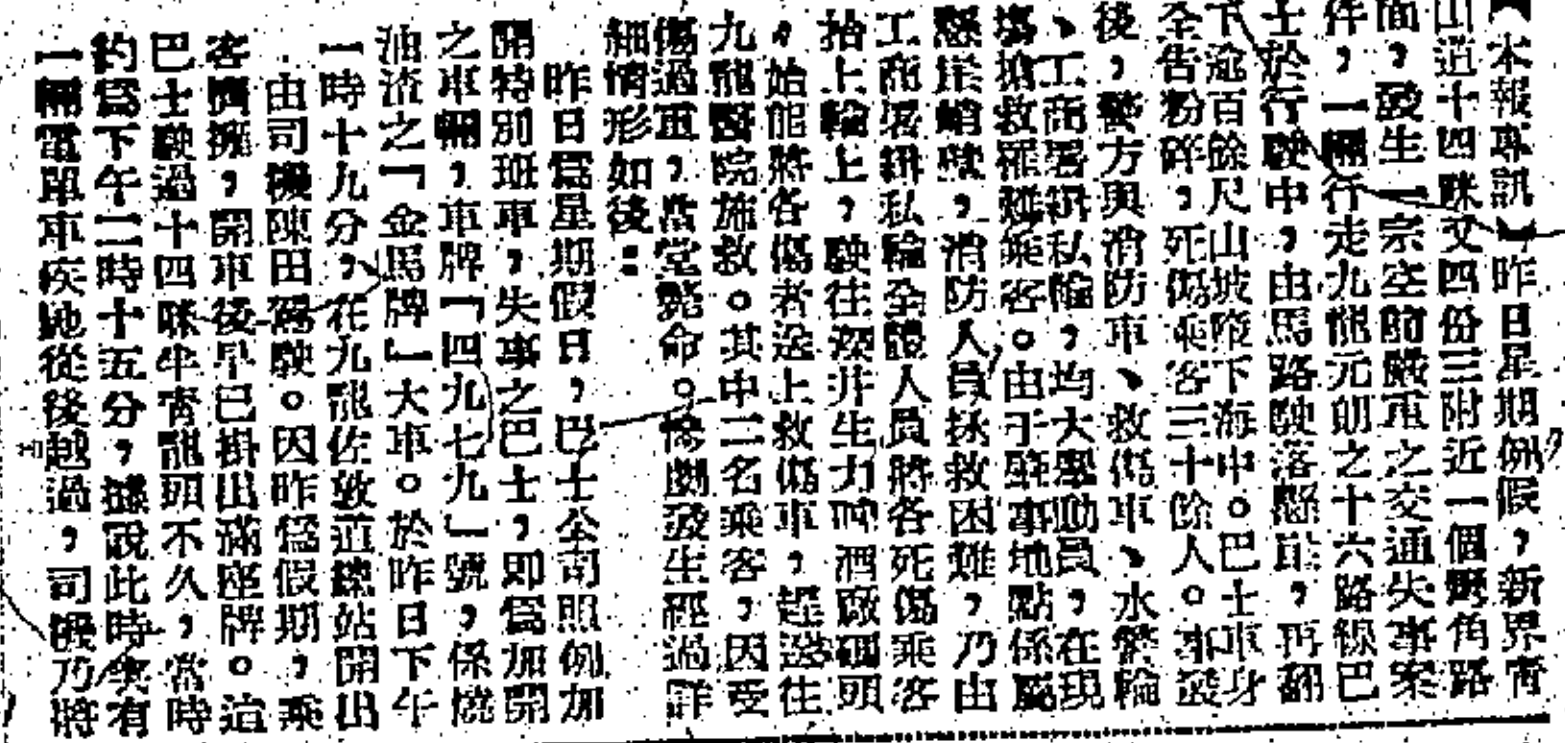 【本報專訊】昨日星期例假，新界靑
山道十四咪又四份三附近一個彎角路
面，發生一宗空前嚴重之交通失事案
件，一輛行走九龍元朗之十六路線巴
士於行駛中，由馬路駛落懸崖，再翻
下逾百餘尺山坡墮下海中。巴士車身
全告粉碎，死傷乘客三十餘人。事發
後，警方與消防車、救傷車、水警輪
、工商署緝私輪，均大舉動員，在現
塲搶救罹難乘客。由于肇事地點係屬
懸崖峭壁，消防人員拯救困難，乃由
工商署緝私輪全體人員將各死傷乘客
抬上輪上，駛往深井生力啤酒廠碼頭
，始能將各傷者送上救傷車，趕送往
九龍醫院施救。其中二名乘客，因受
傷過重，當堂斃命。慘劇發生經過詳
細情形如後：
昨日爲星期假日，巴士公司照例加
開特別班車，失事之巴士，即爲加開
之車輛，車牌「四九七九」號，係燒
油渣之「金馬牌」大車。於昨日下午
一時十九分，在九龍佐敦道總站開出
．由司機陳田駕駛。因昨爲假期，乘
客擠擁，開車後早已掛出滿座牌。這
巴士駛過十四咪半靑龍頭不久，當時
約爲下午二時十五分，據說此時突有
一輛電單車疾馳從後越過，司機乃將